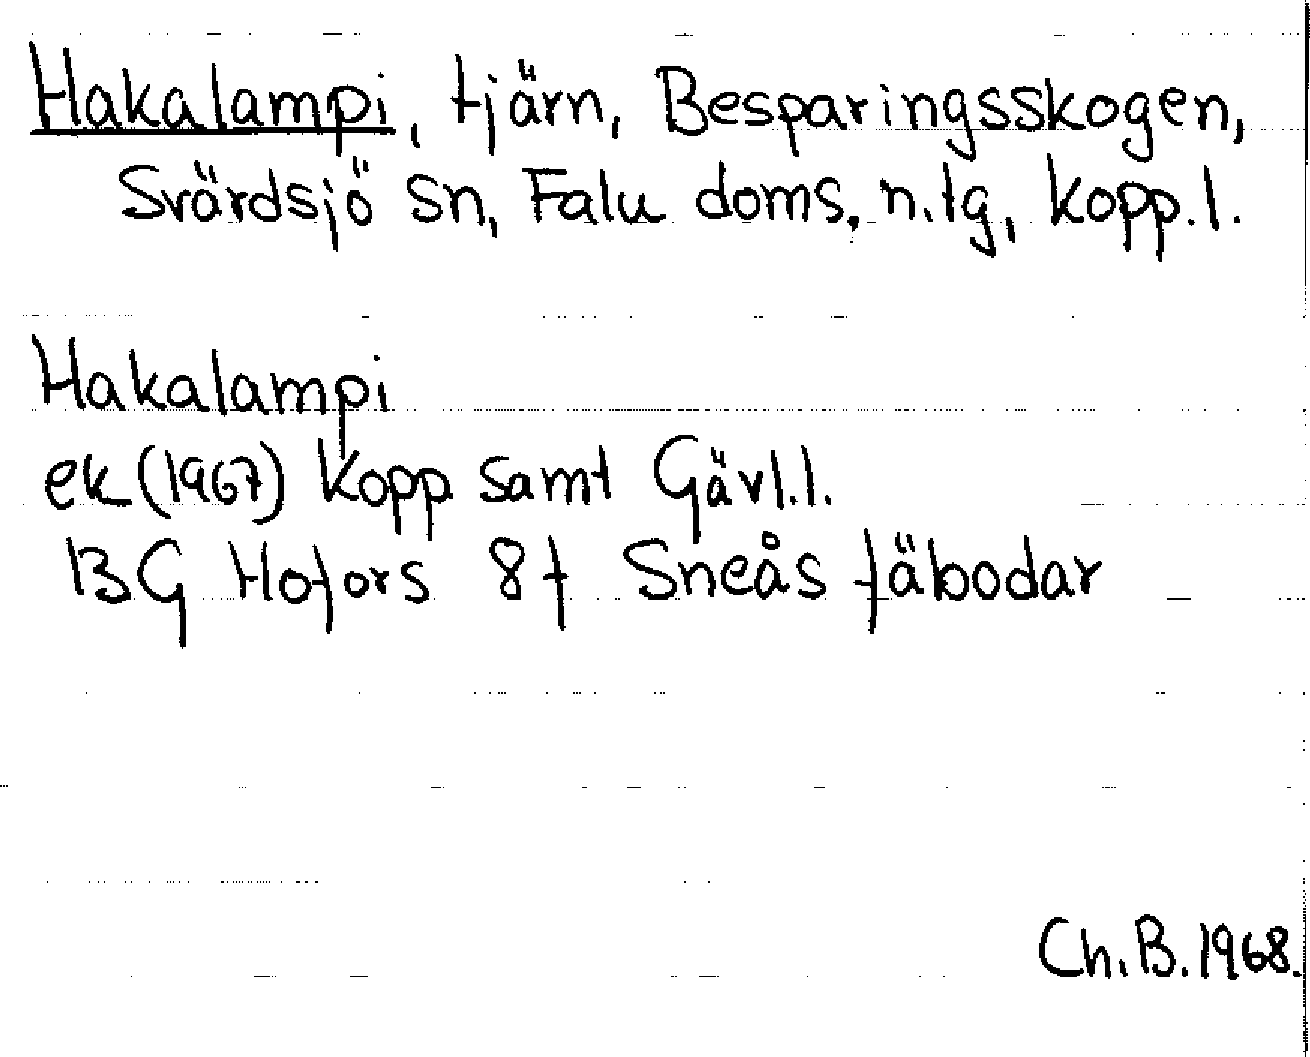 Hakalampi, tjärn, Besparingsskogen,
Svärdsjö sn, Falu doms. n. tg, Kopp. l.
Hakalampi
ek (1967) Kopp samt Gävl. l.
13G Hofors 8f Sneås fäbodar
Ch. B. 1968.